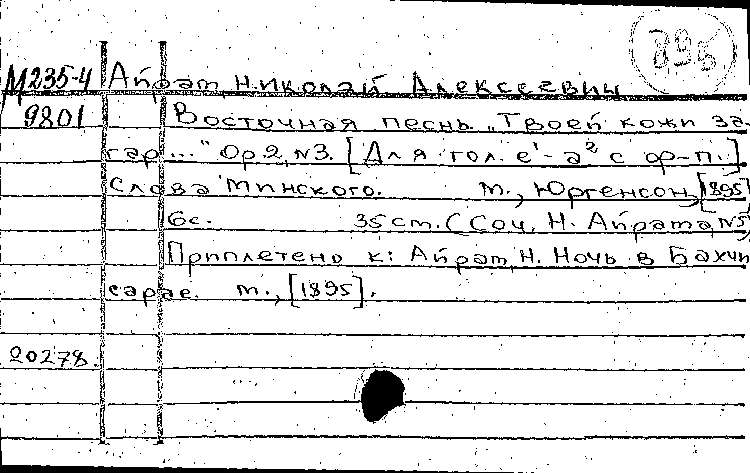 895
М235-4 Айрат, Николай Алексеевич
9801 Восточная песнь. „Твоей кожи за-
гар..." Op.2, N3. [Для гол. e¹-a² с ф-п.].
Слова Минского. М., Юргенсон, [1895]
6с. 35 см. (Соч. Н. Айрата, N5)
Приплетено к: Айрат, Н. Ночь в Бахчи
сарае. М., [1895].
20278.